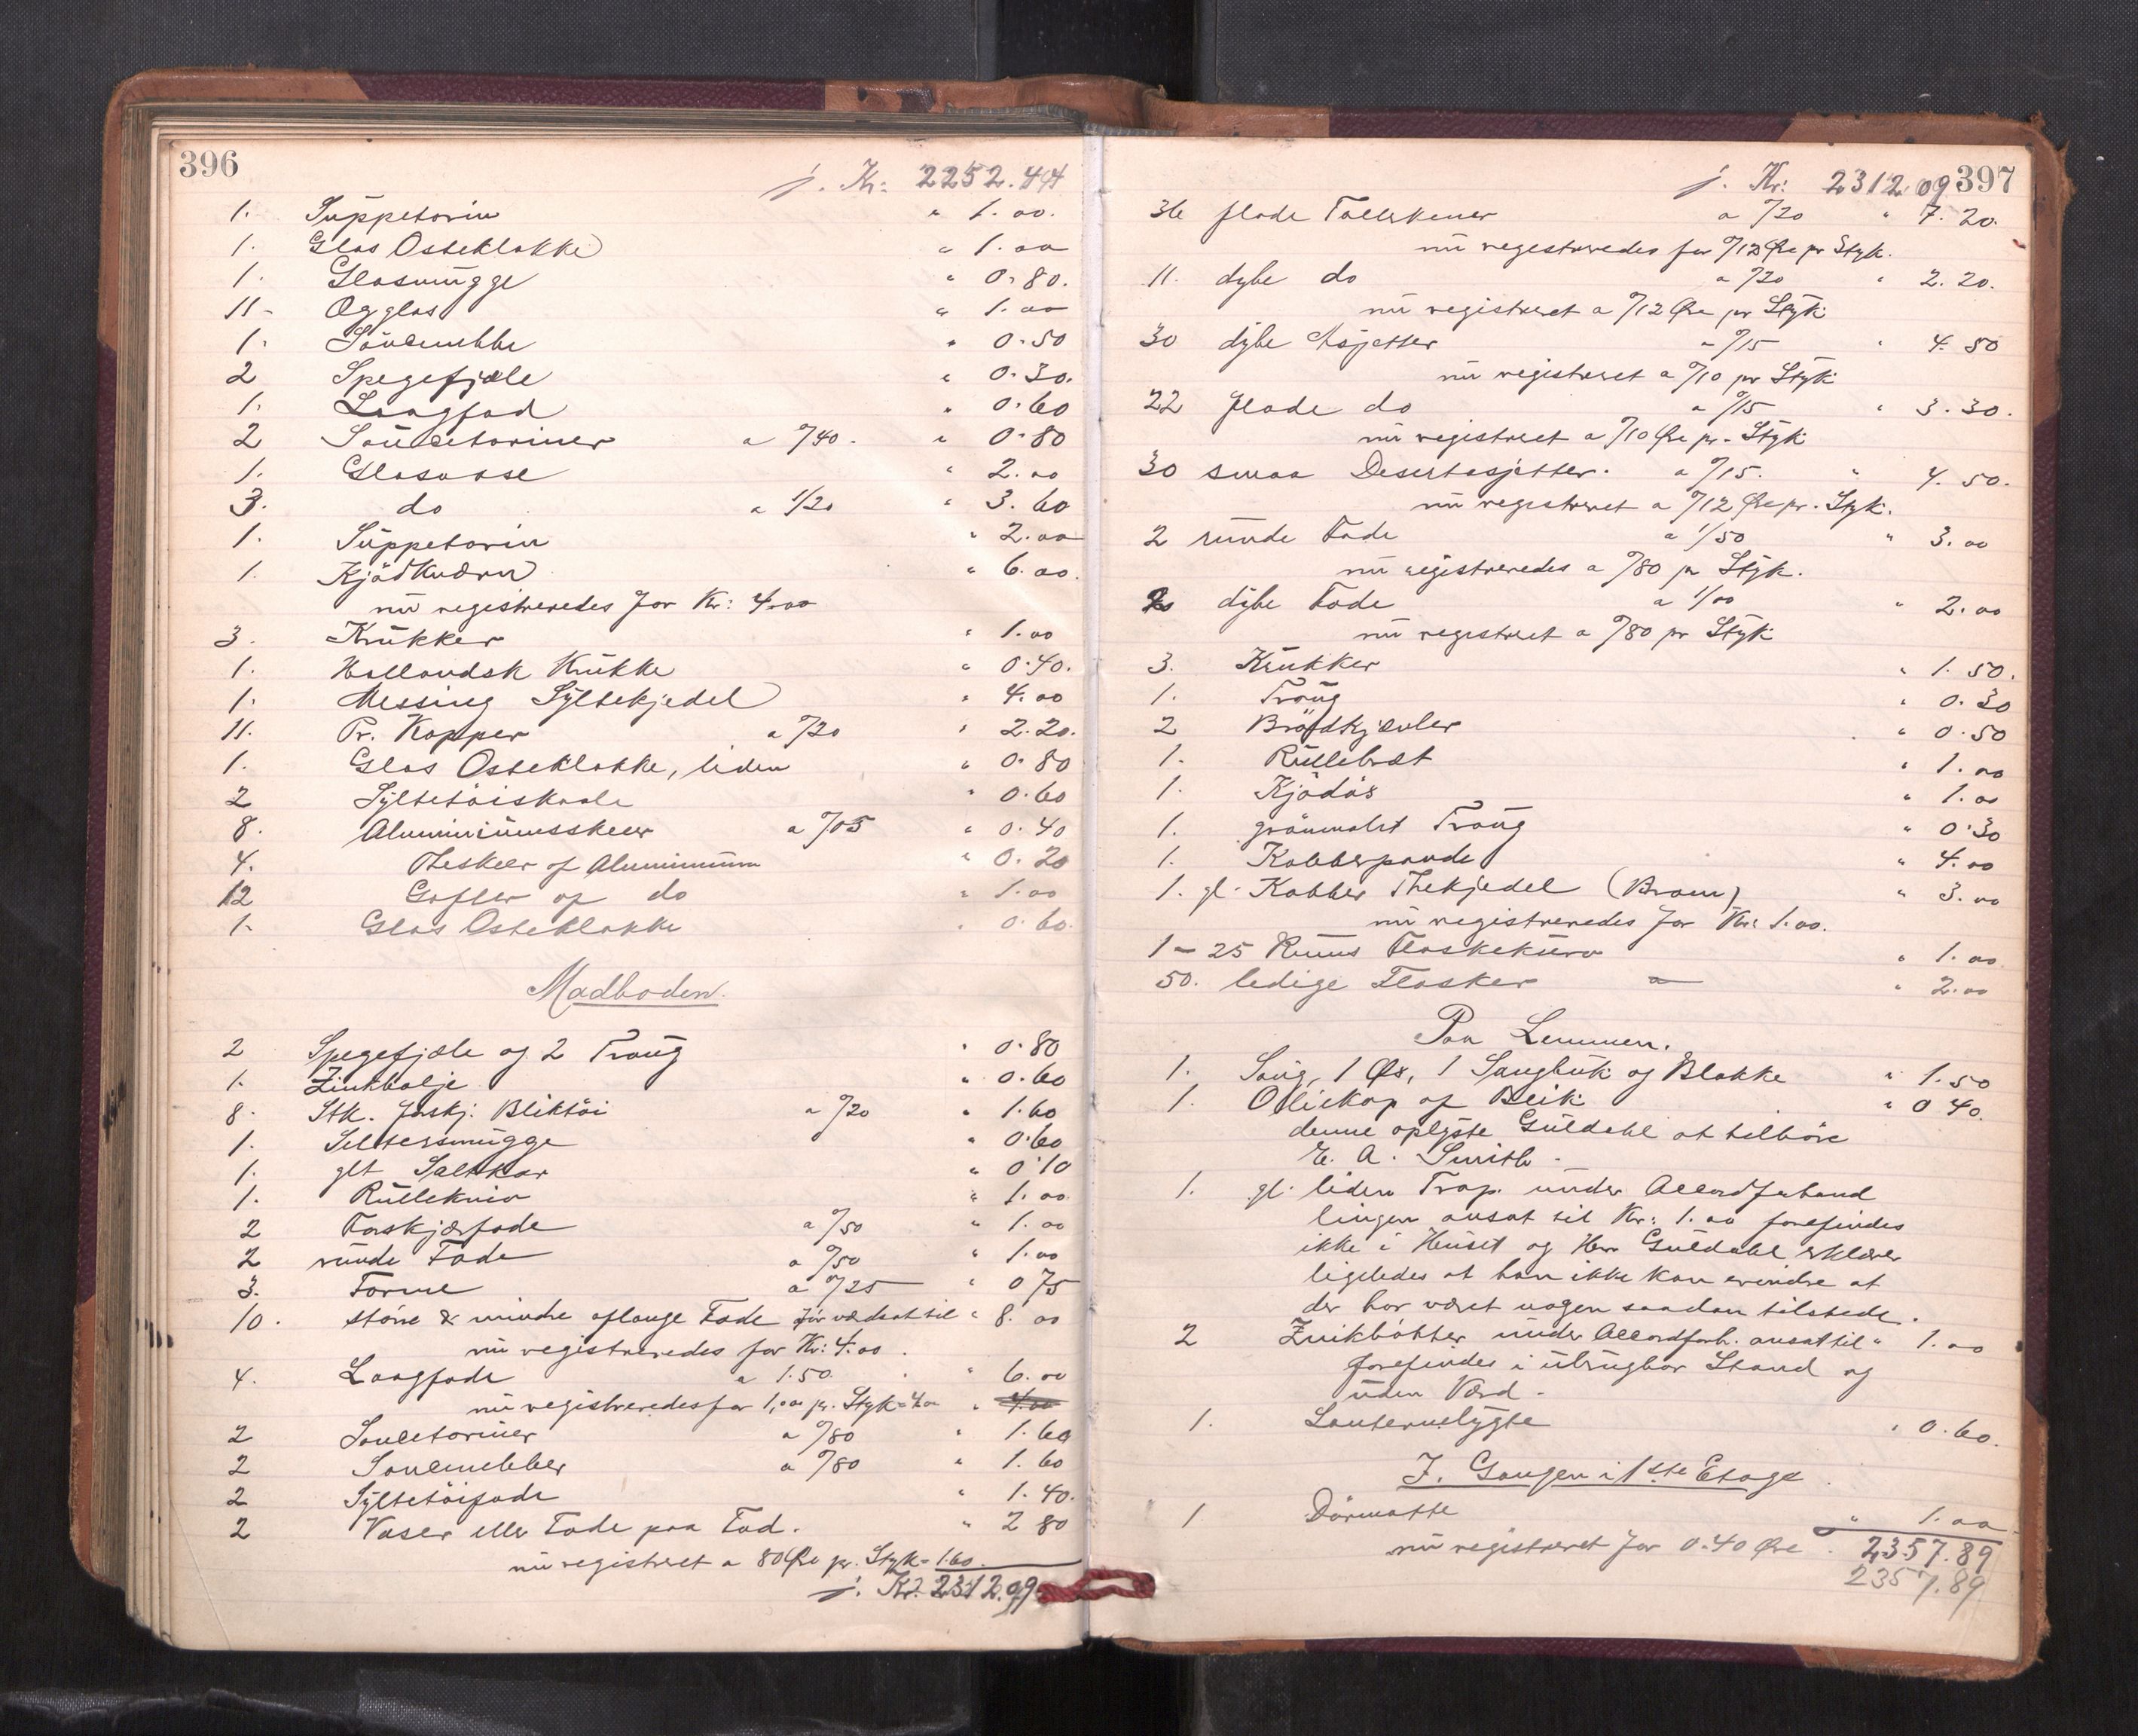 396
j. Kr: 2252.44
1. Süppetorin " 1.00.
1. Glas Osteklokke " 1.00
1. Glasmügge " 0.80.
11 - Ogglas " 1.00
1. Sausenebbe " 0.50
2 Spegefjæle " 0.30.
1. Langfad " 0.60
2 Saucetoriner a 0/40. " 0.80
1. Glasvase " 2.00
3. do a 1/20 " 3.60
1. Süppetorin " 2.00
1. Kjödkværn " 6.00.
nü registreredes for Kr: 4.00
3. Krükker " 1.00
1. Hollandsk Krükke " 0.40.
1. Messing Syltekjedel " 4.00
11. Pr. Kopper a 0/20 " 2.20.
1. Glas Osteklokke, liden " 0.80
2 Syltetöiskaale " 0.60
8. Aluminiümsskeer a 0/05 " 0.40
4. Theskeer af Aluminiüm " 0.20
12 Gafler af do " 1.00
1. Glas Osteklokke " 0.60.
Madboden.
2 Spegefjæle og 2 Traüg " 0.80
1. Zinkbalje " 0.60
8. Stk. forskj. Bliktöi a 0/20 " 1.60
1. Seltersmügge " 0.60
1. glt Saltkar " 0.10
1. Rüllekniv " 1.00
2 Forskjærfade a 0/50 " 1.00
2 ründe Fade a 0/50 " 1.00
3. Forme a 0/25 " 0 75
10. störe & mindre aflange Fade før værdsat til " 8.00
nü registreredes for Kr: 4.00.
4. Langfade a 1.50. " 6.00
nü registreredes for 1,00 pr. Styk = 4.00 " 4.00
2 Saucetoriner a 0/80 " 1.60
2 Saucenebber a 0/80 " 1.60
2 Syltetöifade " 1.40.
2 Vaser eller Fade paa Fod. " 2 80
nü registreret a 80 Øre pr. Styk = 1.60.
j. Kr. 2312.09
397
j. Kr: 2312.09
36 flade Tallerkener a 0/20 " 7.20.
nü regestreredes for 0/12 Øre pr Styk.
11. dybe do a 0/20 " 2.20.
nü registreret a 0/12 Øre pr Styk
30 dybe Asjetter a 0/15 " 4.50
nü registreret a 0/10 pr Styk
22 flade do a 0/15 " 3.30.
nü registreret a 0/10 Øre pr. Styk
30 smaa Desertasjetter. a 0/15. " 4.50.
nü registreret a 0/12 Øre pr. Styk.
2 ründe Fade a 1/50 " 3.00
nü registreredes a 0/80 pr Styk.
2 dybe Fade a 1/00 " 2.00
nü registreret a 0/80 pr Styk
3. Krükker " 1.50.
1. Traüg " 0.30
2 Brödkjævler " 0.50
1. Rüllebræt " 1.00
1. Kjödøs " 1.00
1. grönmalet Traüg " 0.30
1. Kobberpande " 4.00
1. gl. Kobber Thekjedel (Bram) " 3.00
nü registreredes for Kr: 1.00.
1 - 25 Rüms Flaskekürv " 1.00
50. ledige Flasker " 2.00
Paa Lemmen.
1. Saüg, 1 Øx, 1 Saugbük og Blokke " 1.50
1. Oliekop af Blik " 0 40.
denne oplyste Güldahl at tilhöre
E. A. Smith.
1. gl. liden Trap. ünder Accordforhand
lingen ansat til Kr: 1.00 forefindes
ikke i Hüset og Herr Güldahl erklærer
ligeledes at han ikke kan erindre at
der har været nogen saadan tilstede.
2 Zinkbötter ünder Accordforh. ansat til " 1.00
forefindes i übrügbar Stand og
üden Værd.
1. Lanternelygte " 0.60.
I. Gangen i 1ste Etage.
1 Dörmatte " 1.00
nü registreret for 0.40 Øre. 2357.89
2357.89